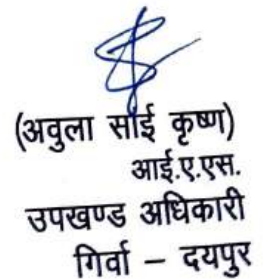 (अवुला साई कृष्ण)
आई.ए.एस.
उपखण्ड अधिकारी
गिर्वा – दयपुर